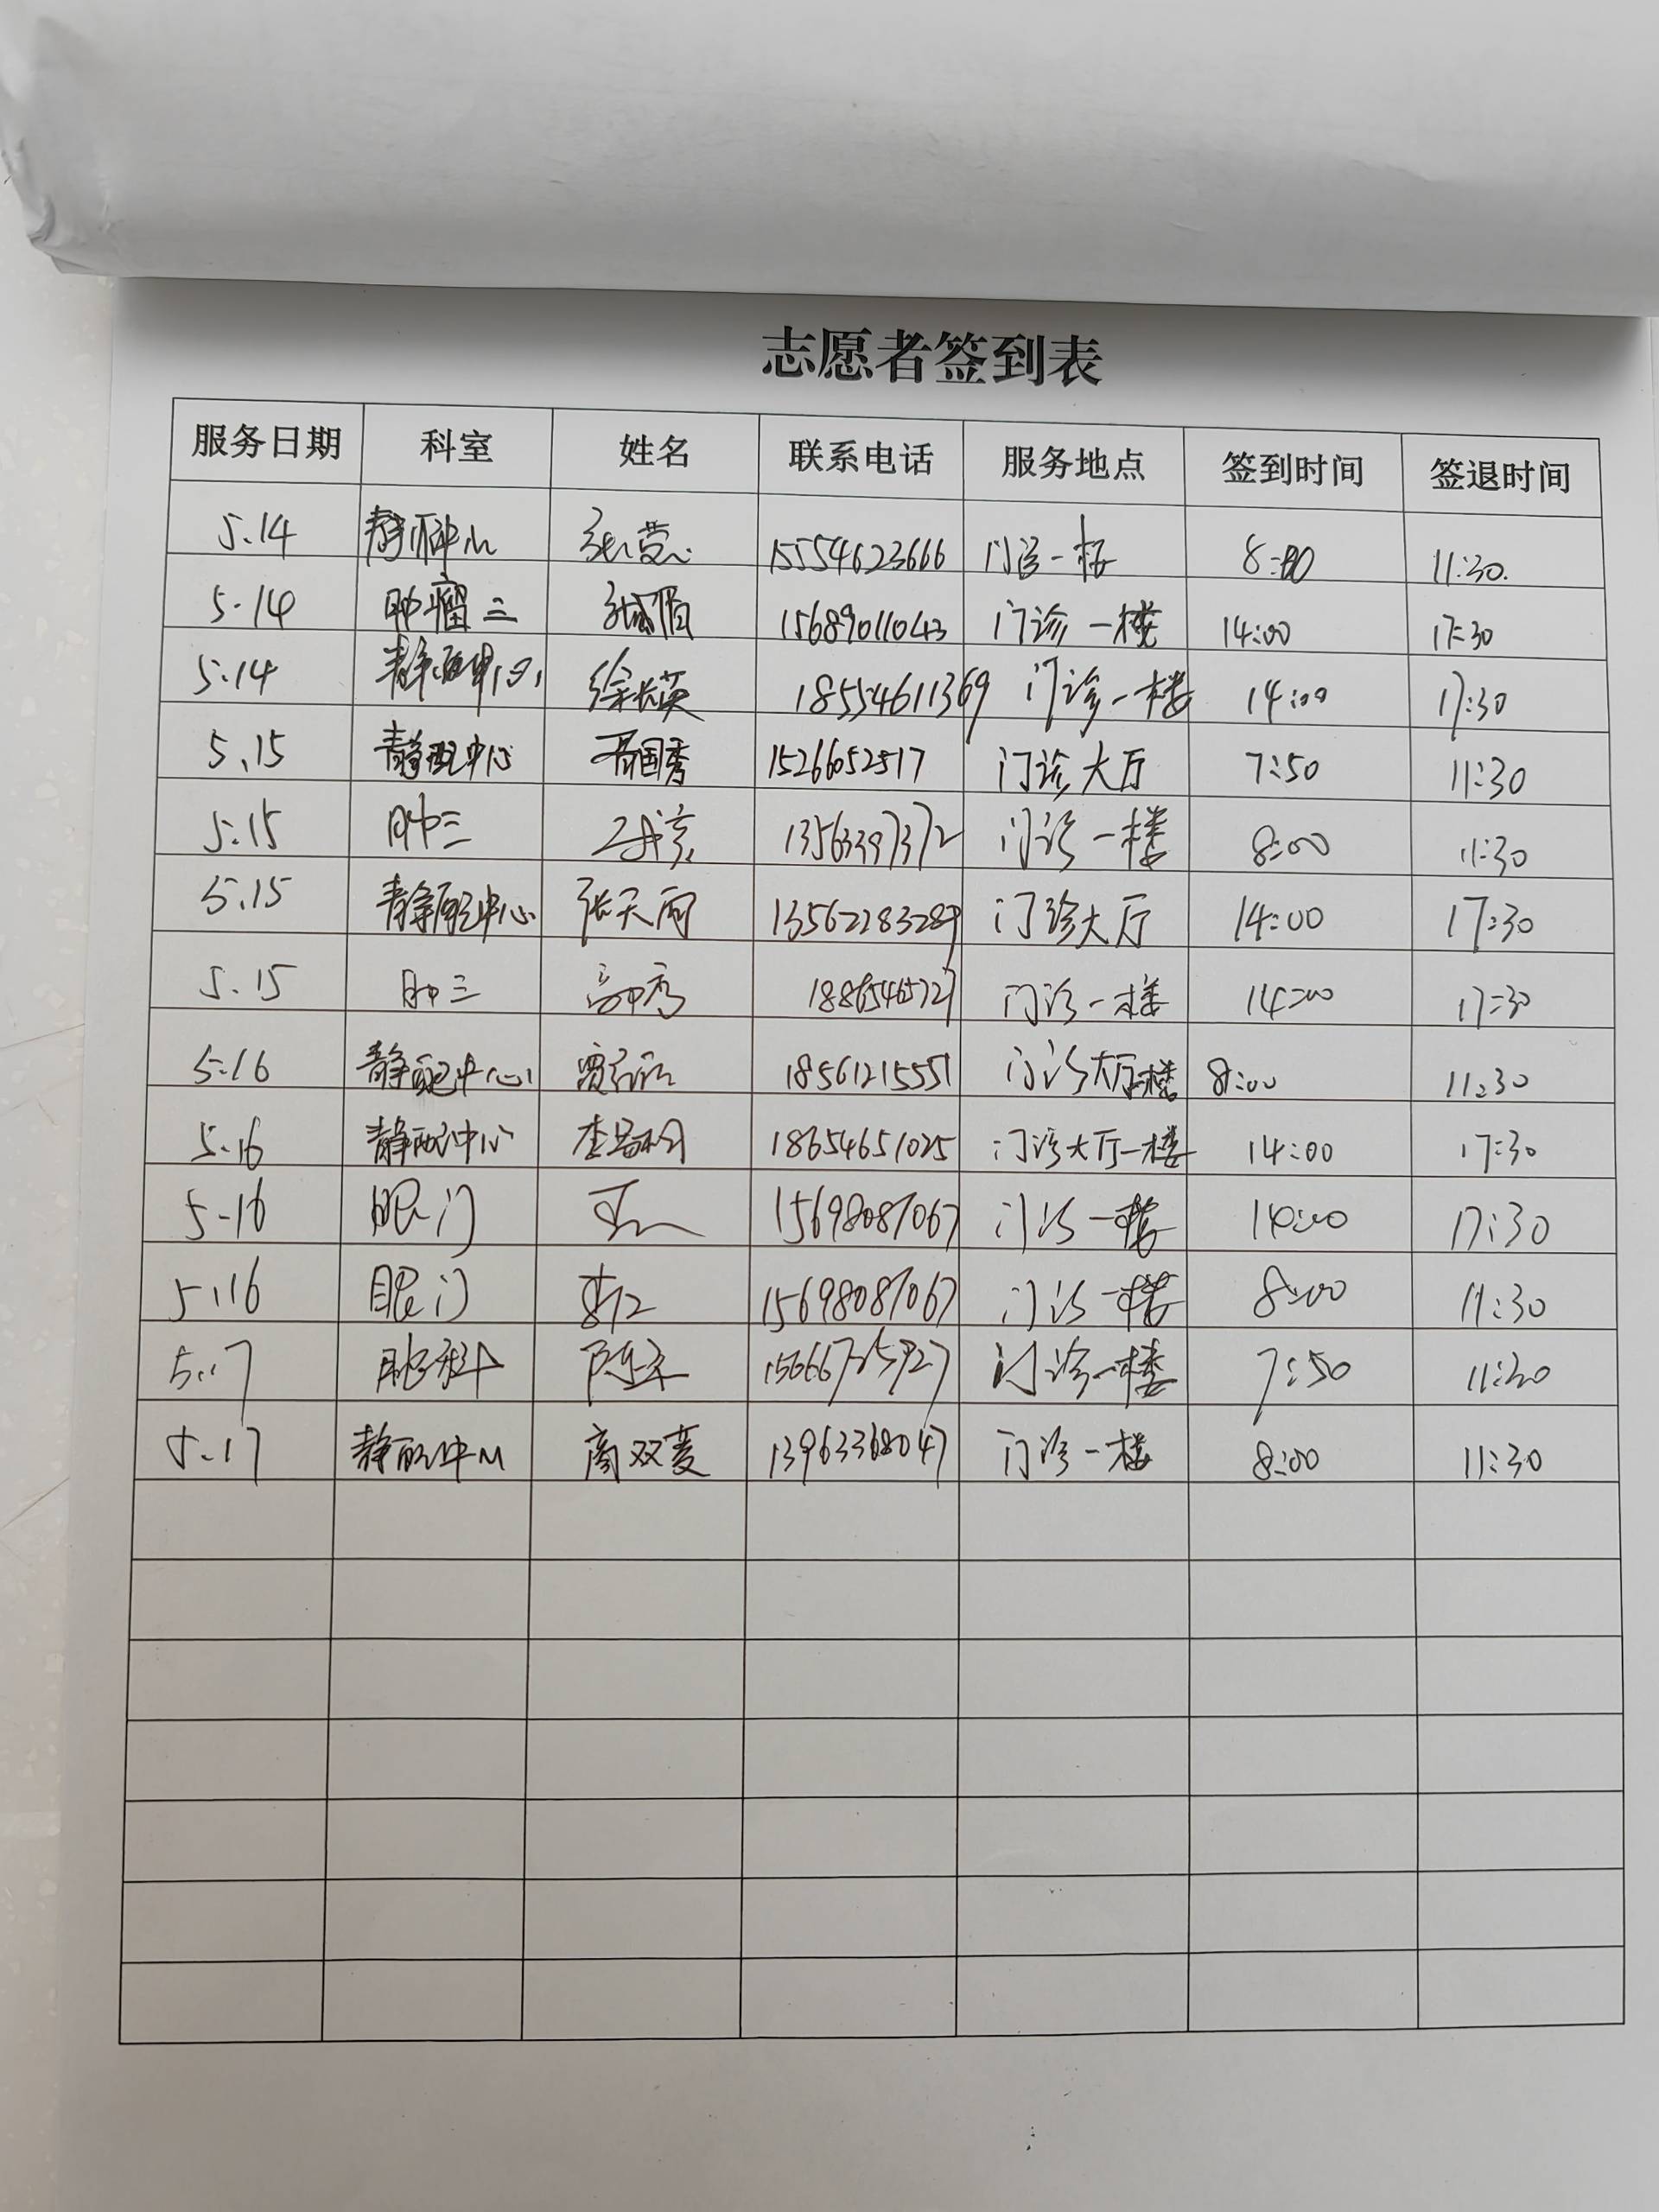 志愿者签到表
服务日期 科室 姓名 联系电话 服务地点 签到时间 签退时间
5.14 静配中心 15554623666 门诊一楼 8:00 11:30.
5.14 肿瘤三 15689011043 门诊一楼 14:00 17:30
5.14 静配中心 徐长英 18554611369 门诊一楼 14:00 17:30
5.15 静配中心 国秀 15266052517 门诊大厅 7:50 11:30
5.15 肿三 13563397372 门诊一楼 8:00 11:30
5.15 静配中心 张天雨 13562283289 门诊大厅 14:00 17:30
5.15 肿三 门诊一楼 14:00 17:30
5.16 静配中心 18561215551 门诊大厅一楼 8:00 11:30
5.16 静配中心 18654651025 门诊大厅一楼 14:00 17:30
5.16 眼门 15698087067 门诊一楼 14:00 17:30
5.16 眼门 15698087067 门诊一楼 8:00 11:30
5.17 门诊一楼 7:50 11:30
5.17 静配中心 商双菱 13963368047 门诊一楼 8:00 11:30